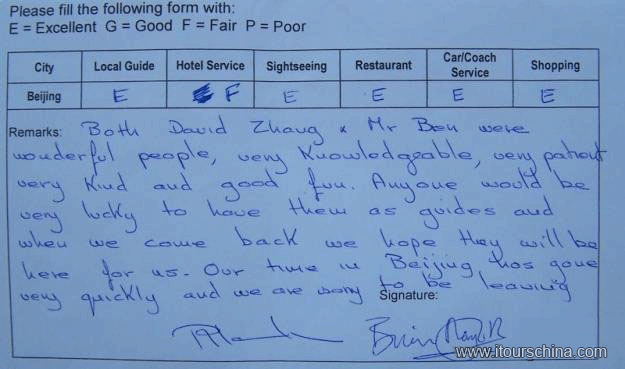 Please fill the following form with:
E = Excellent G = Good F = Fair P = Poor
City Local Guide Hotel Service Sightseeing Restaurant Car/Coach Service Shopping
Beijing E F E E E E
Remarks: Both David Zhang & Mr Ben were
wonderful people, very Knowledgeable, very patient
very Kind and good fun. Anyone would be
very lucky to have them as guides and
when we come back we hope they will be
here for us. Our time in Beijing has gone
very quickly and we are sorry to be leaving
Signature:
Brian
www.itourschina.com